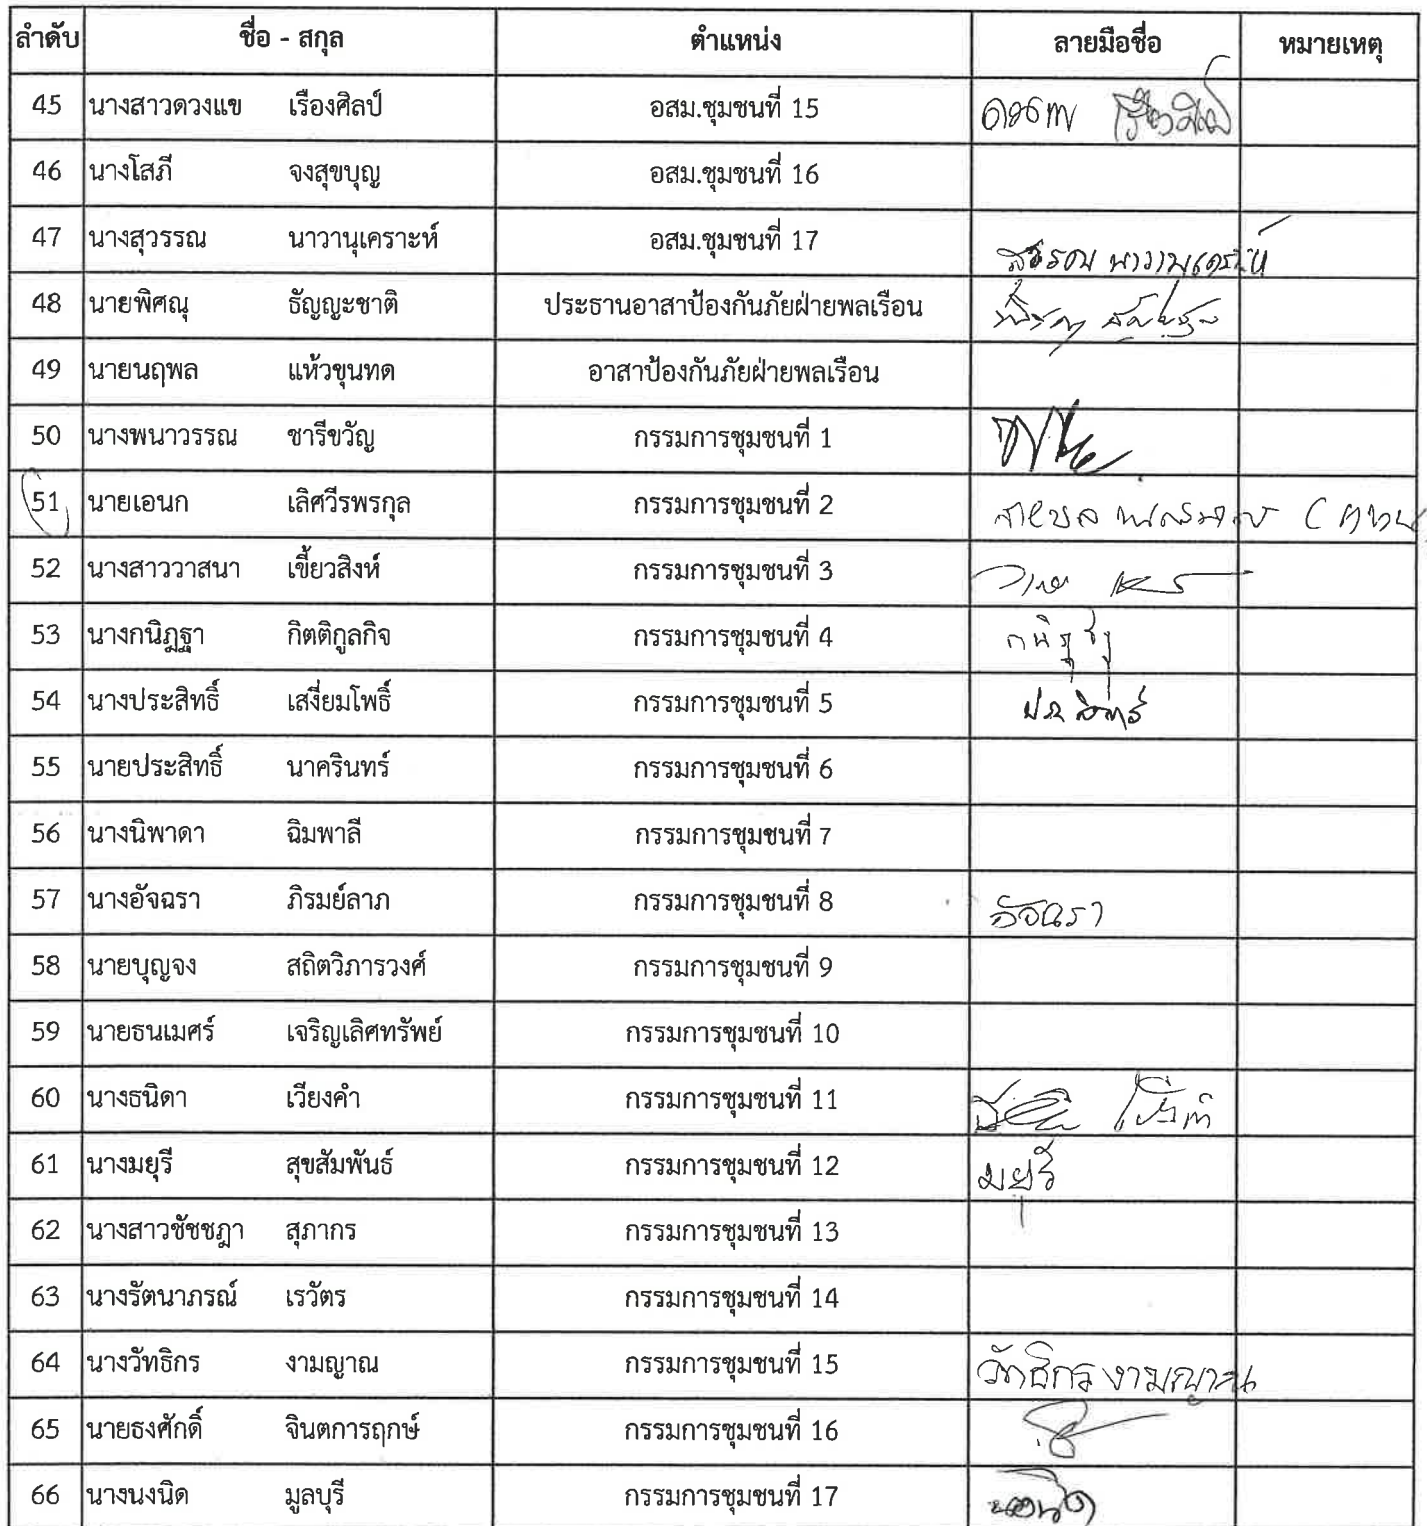 ลำดับ ชื่อ - สกุล ตำแหน่ง ลายมือชื่อ หมายเหตุ
45 นางสาวดวงแข เรืองศิลป์ อสม.ชุมชนที่ 15
46 นางโสภี จงสุขบุญ อสม.ชุมชนที่ 16
47 นางสุวรรณ นาวานุเคราะห์ อสม.ชุมชนที่ 17
48 นายพิศณุ ธัญญะชาติ ประธานอาสาป้องกันภัยฝ่ายพลเรือน
49 นายนฤพล แห้วขุนทด อาสาป้องกันภัยฝ่ายพลเรือน
50 นางพนาวรรณ ชารีขวัญ กรรมการชุมชนที่ 1
51 นายเอนก เลิศวีรพรกุล กรรมการชุมชนที่ 2
52 นางสาววาสนา เขี้ยวสิงห์ กรรมการชุมชนที่ 3
53 นางกนิฎฐา กิตติกูลกิจ กรรมการชุมชนที่ 4
54 นางประสิทธิ์ เสงี่ยมโพธิ์ กรรมการชุมชนที่ 5 ประสิทธิ์
55 นายประสิทธิ์ นาครินทร์ กรรมการชุมชนที่ 6
56 นางนิพาดา ฉิมพาลี กรรมการชุมชนที่ 7
57 นางอัจฉรา ภิรมย์ลาภ กรรมการชุมชนที่ 8 อัจฉรา
58 นายบุญจง สถิตวิภารวงศ์ กรรมการชุมชนที่ 9
59 นายธนเมศร์ เจริญเลิศทรัพย์ กรรมการชุมชนที่ 10
60 นางธนิดา เวียงคำ กรรมการชุมชนที่ 11
61 นางมยุรี สุขสัมพันธ์ กรรมการชุมชนที่ 12 มยุรี
62 นางสาวชัชชฎา สุภากร กรรมการชุมชนที่ 13
63 นางรัตนาภรณ์ เรวัตร กรรมการชุมชนที่ 14
64 นางวัทธิกร งามญาณ กรรมการชุมชนที่ 15 วัทธิกร งามญาณ
65 นายธงศักดิ์ จินตการฤกษ์ กรรมการชุมชนที่ 16
66 นางนงนิด มูลบุรี กรรมการชุมชนที่ 17